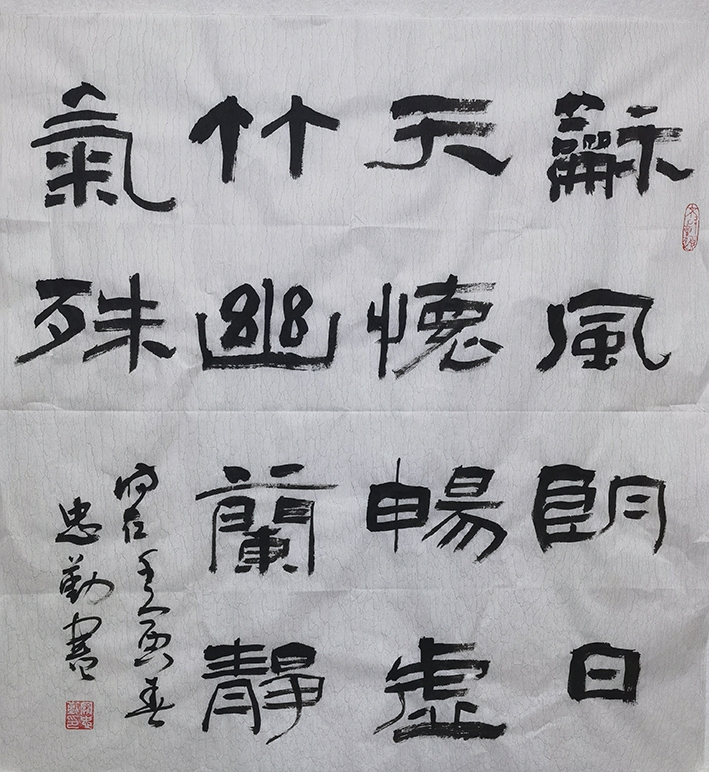 龢風朗日
天懷暢虛
竹幽蘭靜
氣殊
时在壬寅春
忠勤書